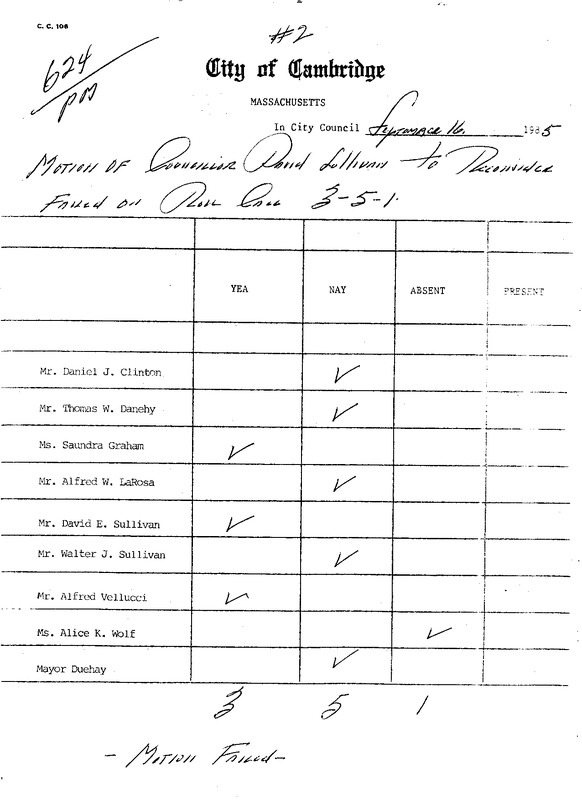 C. C. 106
#2
624
pm
City of Cambridge
MASSACHUSETTS
In City Council September 16, 1985
Motion of Councillor David Sullivan to Reconsider
Failed on Roll Call 3-5-1.
YEA NAY ABSENT PRESENT
Mr. Daniel J. Clinton ✓
Mr. Thomas W. Danehy ✓
Ms. Saundra Graham ✓
Mr. Alfred W. LaRosa ✓
Mr. David E. Sullivan ✓
Mr. Walter J. Sullivan ✓
Mr. Alfred Vellucci ✓
Ms. Alice K. Wolf ✓
Mayor Duehay ✓
3 5 1
- Motion Failed -